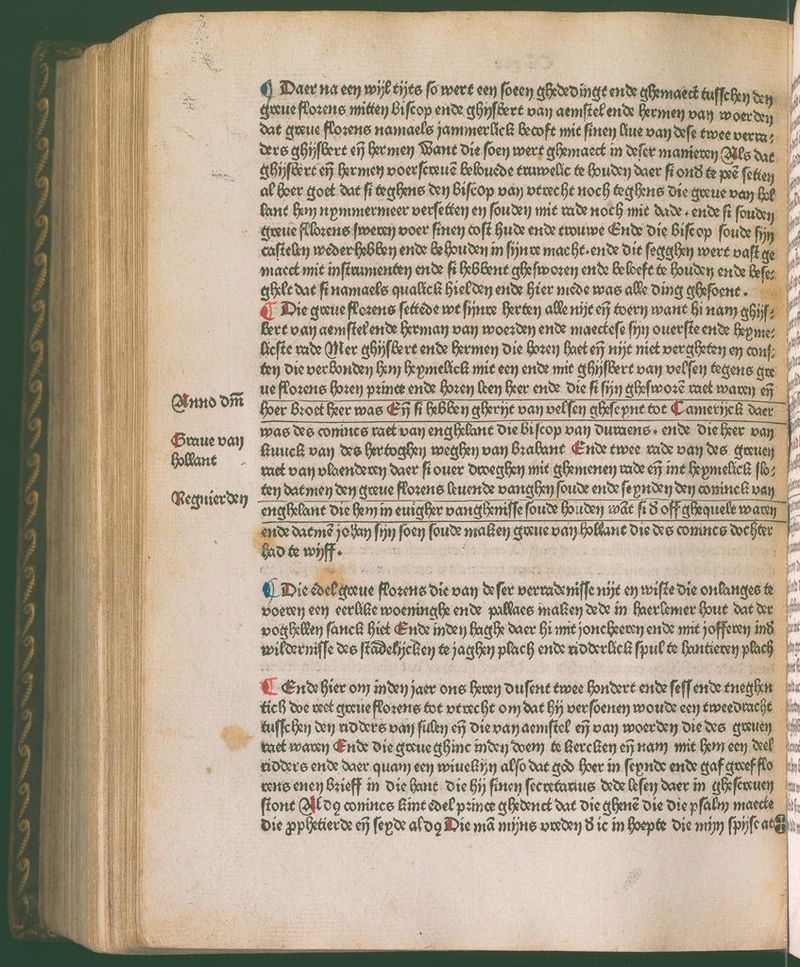 Daer na een wijl tijts so wert een soen ghededingt ende ghemaect tusschen den
greue florens mitten biscop ende ghijsbert van aemstel ende hermen van woerden
dat greue florens namaels jammerlick becoft mit sinen liue van dese twee verra-
ders ghijsbert eñ hermen Want die soen wert ghemaect in deser manieren Als dat
ghijsbert eñ hermen voerscreuē beloued truwelic te houden daer si ond te peē setten
al hoer goet dat si teghens den biscop van vtrecht noch teghens die greue van hol
lant hem nymmermeer versetten en souden mit rade noch mit dade. ende si souden
greue florens sweren voer sinen cost hude ende trouwe Ende die biscop soude sijn
castelen wederhebben ende behouden in sijnre macht. ende dit segghen wert vast ge
maect mit instrumenten ende si hebbent ghesworen ende beloeft te houden ende bese-
ghelt dat si namaels qualick hielden ende hier mede was alle ding ghesoent.
Die greue florens settede wt sijnre herten alle nijt eñ toern want hi nam ghijs-
bert van aemstel ende herman van woerden ende maectese sijn ouerste ende heyme-
licste rade Mer ghijsbert ende hermen die horen haet eñ nijt niet vergheten en cons-
ten die verbonden hem heymelick mit een ende mit ghijsbert van velsen tegens gre
ue florens horen prince ende horen leen heer ende die si sijn ghesworē raet waren eñ
hoer broet heer was Eñ si hebben gherijt van velsen gheseynt tot Camerijck daer
was des conincs raet van enghelant die biscop van duraens. ende die heer van
kuuck van des hertoghen weghen van brabant Ende twee rade van des greuen
raet van vlaenderen daer si ouer droeghen mit ghemenen rade eñ int heymelick slo-
ten datmen den greue florens leuende vanghen soude ende seynden den coninck van
enghelant die hem in euigher vanghenisse soude houden wāt si d off ghequelt waren
ende datmē johan sijn soen soude maken greue van hollant die des conincs dochter
had te wijff.
Anno dm̄
Graue van
hollant
Regnierden
Die edel greue florens die van deser verradenisse nijt en wiste die onlanges te
voeren een eerlike woeninghe ende pallaes maken dede in haerlemer hout dat der
voghelen sanck hiet Ende inden haghe daer hi mit joncheeren ende mit jofferen ind
wildernisse des stādelijcken te jaghen plach ende ridderlick spul te hantieren plach
Ende hier om inden jaer ons heren dusent twee hondert ende sess ende tneghen
tich doe reet greue florens tot vtrecht om dat hij versoenen woude een tweedracht
tusschen den ridders van sulen eñ die van aemstel eñ van woerden die des greuen
raet waren Ende die greue ghinc inden doem te kercken eñ nam mit hem een deel
ridders ende daer quam een wiuekijn also dat god hoer in seynde ende gaf greef flo
rens enen brieff in die hant die hij sinen secretarius dede lesen daer in ghescreuen
stont Aldꝰ conincs kint edel prince ghedenct dat die ghenē die die psalm maecte
die ꝓphetierde eñ seyde aldꝰ Die mā mijns vreden d ic in hoepte die mijn spijse at